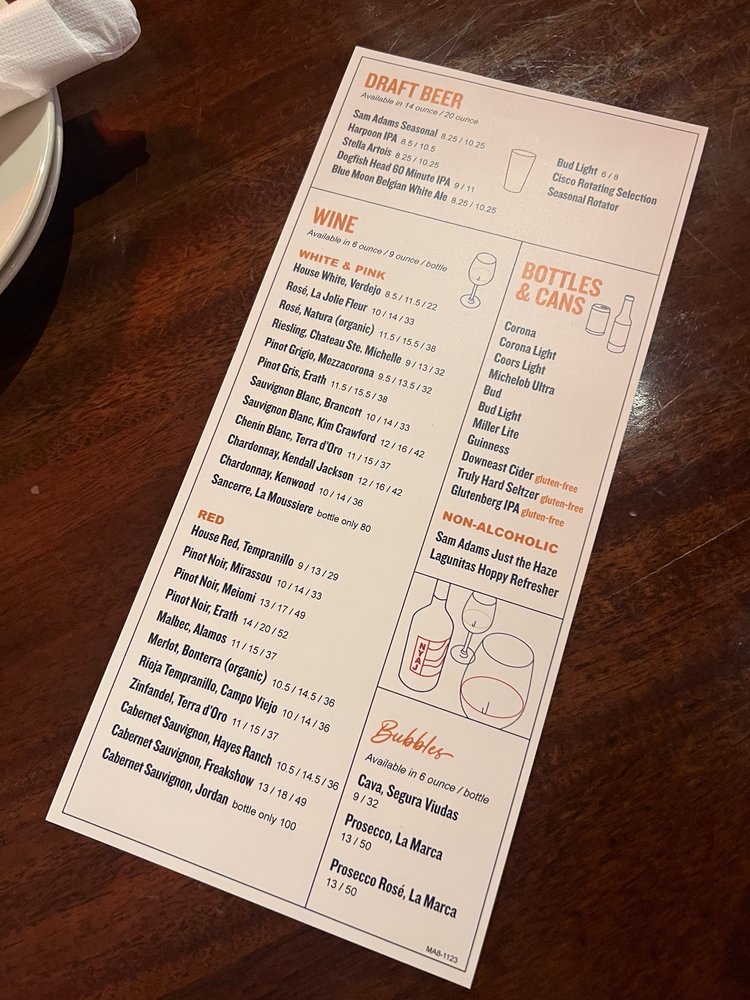 DRAFT BEER
Available in 14 ounce / 20 ounce
Sam Adams Seasonal 8.25 / 10.25
Harpoon IPA 8.5 / 10.5
Stella Artois 8.25 / 10.25
Dogfish Head 60 Minute IPA 9 / 11
Blue Moon Belgian White Ale 8.25 / 10.25
Bud Light 6 / 8
Cisco Rotating Selection
Seasonal Rotator
WINE
Available in 6 ounce / 9 ounce / bottle
WHITE & PINK
House White, Verdejo 8.5 / 11.5 / 22
Rosé, La Jolie Fleur 10 / 14 / 33
Rosé, Natura (organic) 11.5 / 15.5 / 38
Riesling, Chateau Ste. Michelle 9 / 13 / 32
Pinot Grigio, Mezzacorona 9.5 / 13.5 / 32
Pinot Gris, Erath 11.5 / 15.5 / 38
Sauvignon Blanc, Brancott 10 / 14 / 33
Sauvignon Blanc, Kim Crawford 12 / 16 / 42
Chenin Blanc, Terra d'Oro 11 / 15 / 37
Chardonnay, Kendall Jackson 12 / 16 / 42
Chardonnay, Kenwood 10 / 14 / 36
Sancerre, La Moussiere bottle only 80
RED
House Red, Tempranillo 9 / 13 / 29
Pinot Noir, Mirassou 10 / 14 / 33
Pinot Noir, Meiomi 13 / 17 / 49
Pinot Noir, Erath 14 / 20 / 52
Malbec, Alamos 11 / 15 / 37
Merlot, Bonterra (organic) 10.5 / 14.5 / 36
Rioja Tempranillo, Campo Viejo 10 / 14 / 36
Zinfandel, Terra d'Oro 11 / 15 / 37
Cabernet Sauvignon, Hayes Ranch 10.5 / 14.5 / 36
Cabernet Sauvignon, Freakshow 13 / 18 / 49
Cabernet Sauvignon, Jordan bottle only 100
BOTTLES
& CANS
Corona
Corona Light
Coors Light
Michelob Ultra
Bud
Bud Light
Miller Lite
Guinness
Downeast Cider gluten-free
Truly Hard Seltzer gluten-free
Glutenberg IPA gluten-free
NON-ALCOHOLIC
Sam Adams Just the Haze
Lagunitas Hoppy Refresher
NYAJ
Bubbles
Available in 6 ounce / bottle
Cava, Segura Viudas
9 / 32
Prosecco, La Marca
13 / 50
Prosecco Rosé, La Marca
13 / 50
MA8-1123